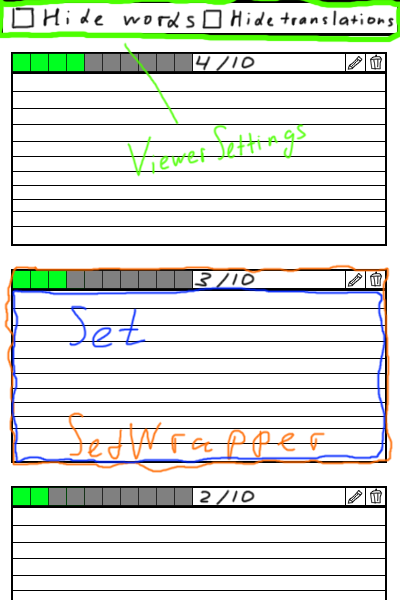 Hide words Hide translations
4/10
Viewer Settings
3/10
Set
SetWrapper
2/10